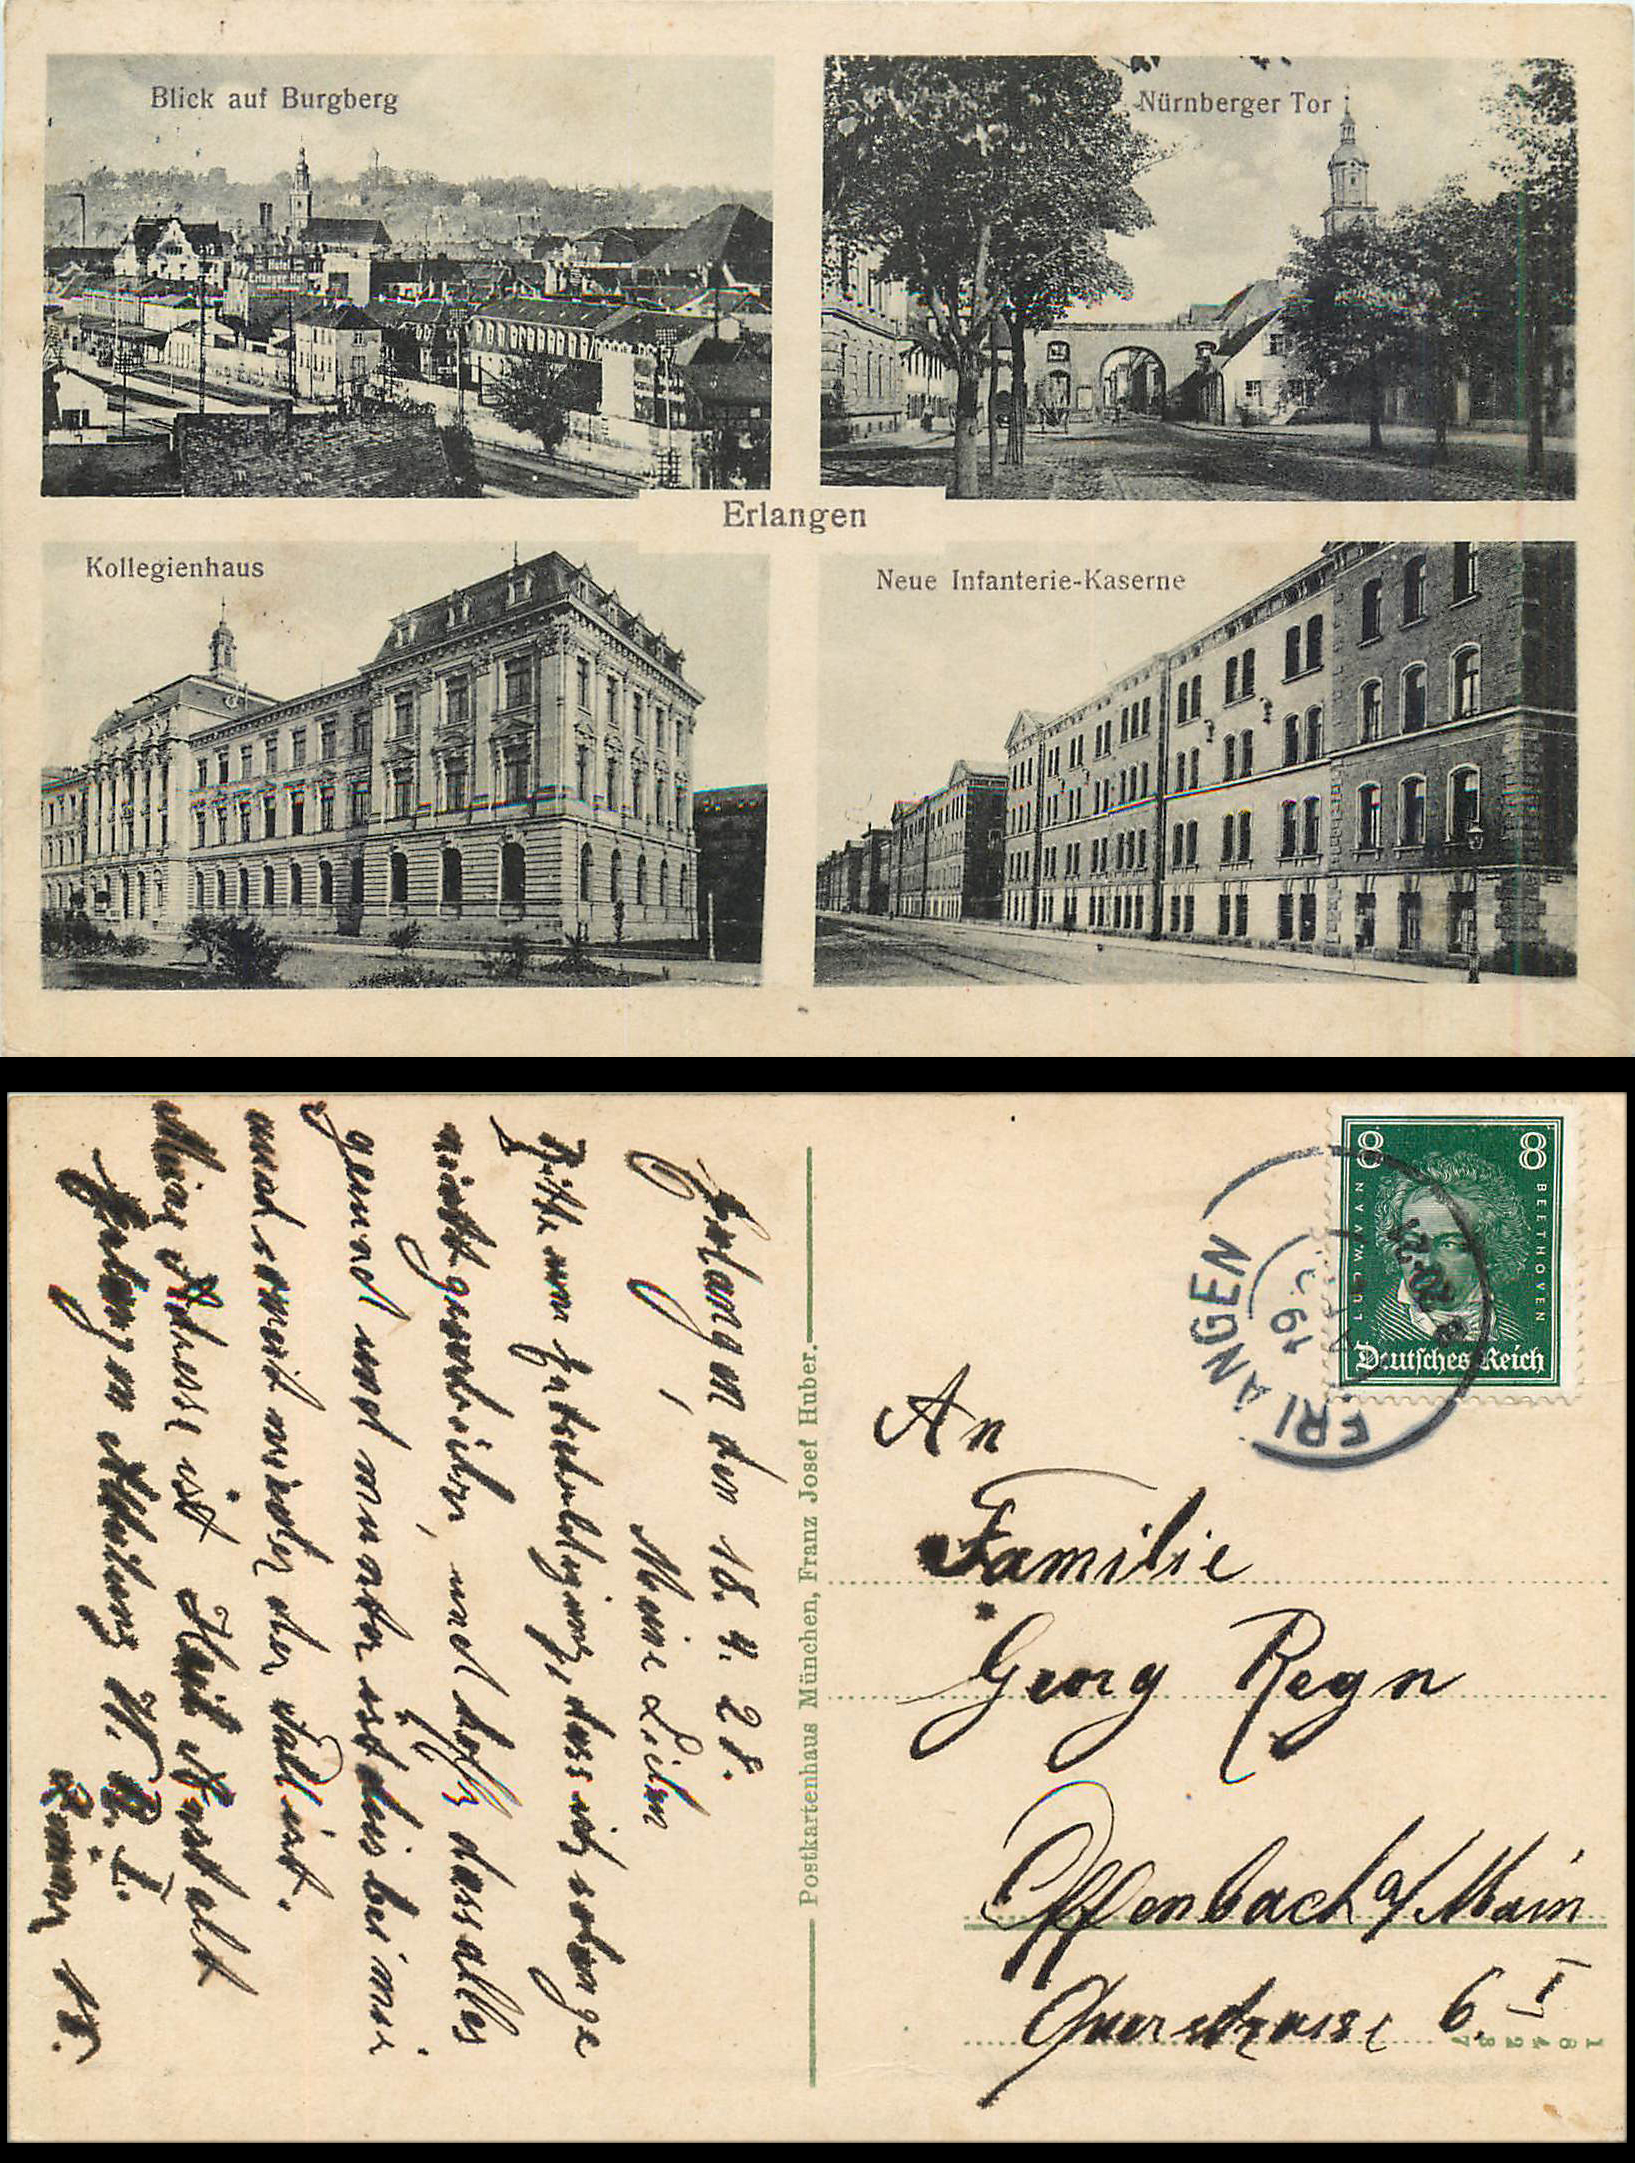 Blick auf Burgberg
Nürnberger Tor
Hotel
Erlangen
Kollegienhaus
Neue Infanterie-Kaserne
Erlangen, den 18. 4. 28.
Meine Lieben
Bitte um Entschuldigung, dass ich solange
nicht geschrieben, und hoffe dass alles
gesund und munter ist dies bei mir
auch soweit wieder der Fall ist.
Meine Adresse ist
Erlangen
Postkartenhaus München, Franz Josef Huber.
8 8
LUDW. VAN BEETHOVEN
Deutsches Reich
ERLANGEN
An
Familie
Georg Regn
Offenbach a/Main
Querstrasse 6. I
184287